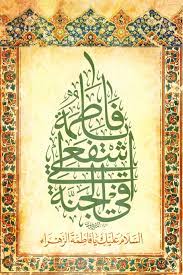 یا فاطمة
اشفعی لی
فی الجنة
السلام علیک یا فاطمة الزهراء